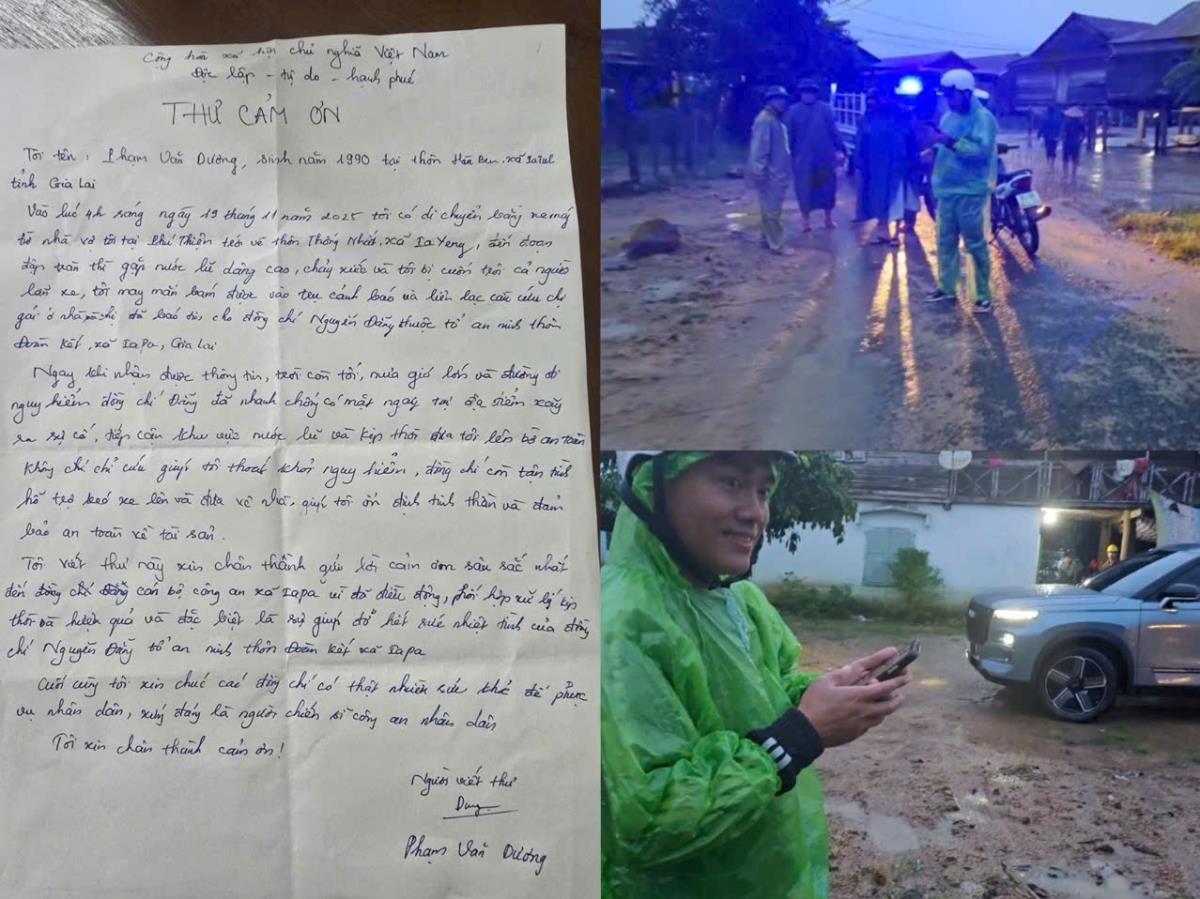 Cộng hoà xã hội chủ nghĩa Việt Nam
Độc lập - tự do - hạnh phúc
THƯ CẢM ƠN
Tôi tên : Phạm Văn Dương, sinh năm 1990 tại thôn xã IaTul
tỉnh Gia Lai
Vào lúc 4h sáng ngày 19 tháng 11 năm 2025 tôi có di chuyển bằng xe máy
từ nhà vợ tôi tại Phú Thiện trở về thôn Thống Nhất, xã Ia Yeng, đến đoạn
đập tràn thì gặp nước lũ dâng cao, chảy xiết và tôi bị cuốn trôi cả người
lẫn xe, tôi may mắn bám được vào trụ cảnh báo và liên lạc cầu cứu chị
gái ở nhà chị đã báo tin cho đồng chí Nguyễn Đăng thuộc tổ an ninh thôn
Đoàn Kết, xã IaPa, Gia Lai
Ngay khi nhận được thông tin, trời còn tối, mưa gió lớn và đường đi
nguy hiểm đồng chí Đăng đã nhanh chóng có mặt ngay tại địa điểm xảy
ra sự cố, tiếp cận khu vực nước lũ và kịp thời đưa tôi lên bờ an toàn
Không chỉ chỉ cứu giúp tôi thoát khỏi nguy hiểm, đồng chí còn tận tình
hỗ trợ kéo xe lên và đưa về nhà, giúp tôi ổn định tinh thần và đảm
bảo an toàn về tài sản.
Tôi viết thư này xin chân thành gửi lời cảm ơn sâu sắc nhất
đến cán bộ công an xã IaPa vì đã điều động, phối hợp xử lý kịp
thời và hiệu quả và đặc biệt là sự giúp đỡ hết sức nhiệt tình của đồng
chí Nguyễn Đăng tổ an ninh thôn Đoàn Kết xã IaPa
Cuối cùng tôi xin chúc các đồng chí có thật nhiều sức khỏe để phục
vụ nhân dân, xứng đáng là người chiến sĩ công an nhân dân
Tôi xin chân thành cảm ơn!
Người viết thư
Dương
Phạm Văn Dương